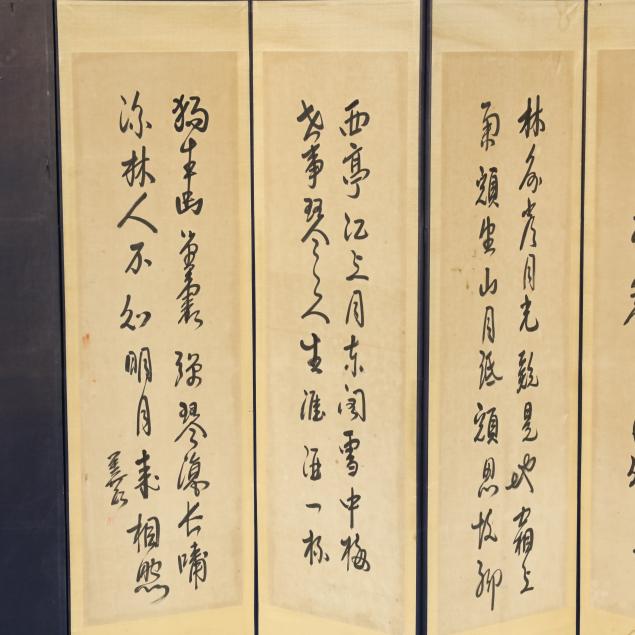 牀前看月光疑是地上霜
舉頭望山月低頭思故鄉
西亭江上月東閣雪中梅
世事琴三尺生涯酒一杯
獨坐幽篁裏彈琴復長嘯
深林人不知明月來相照